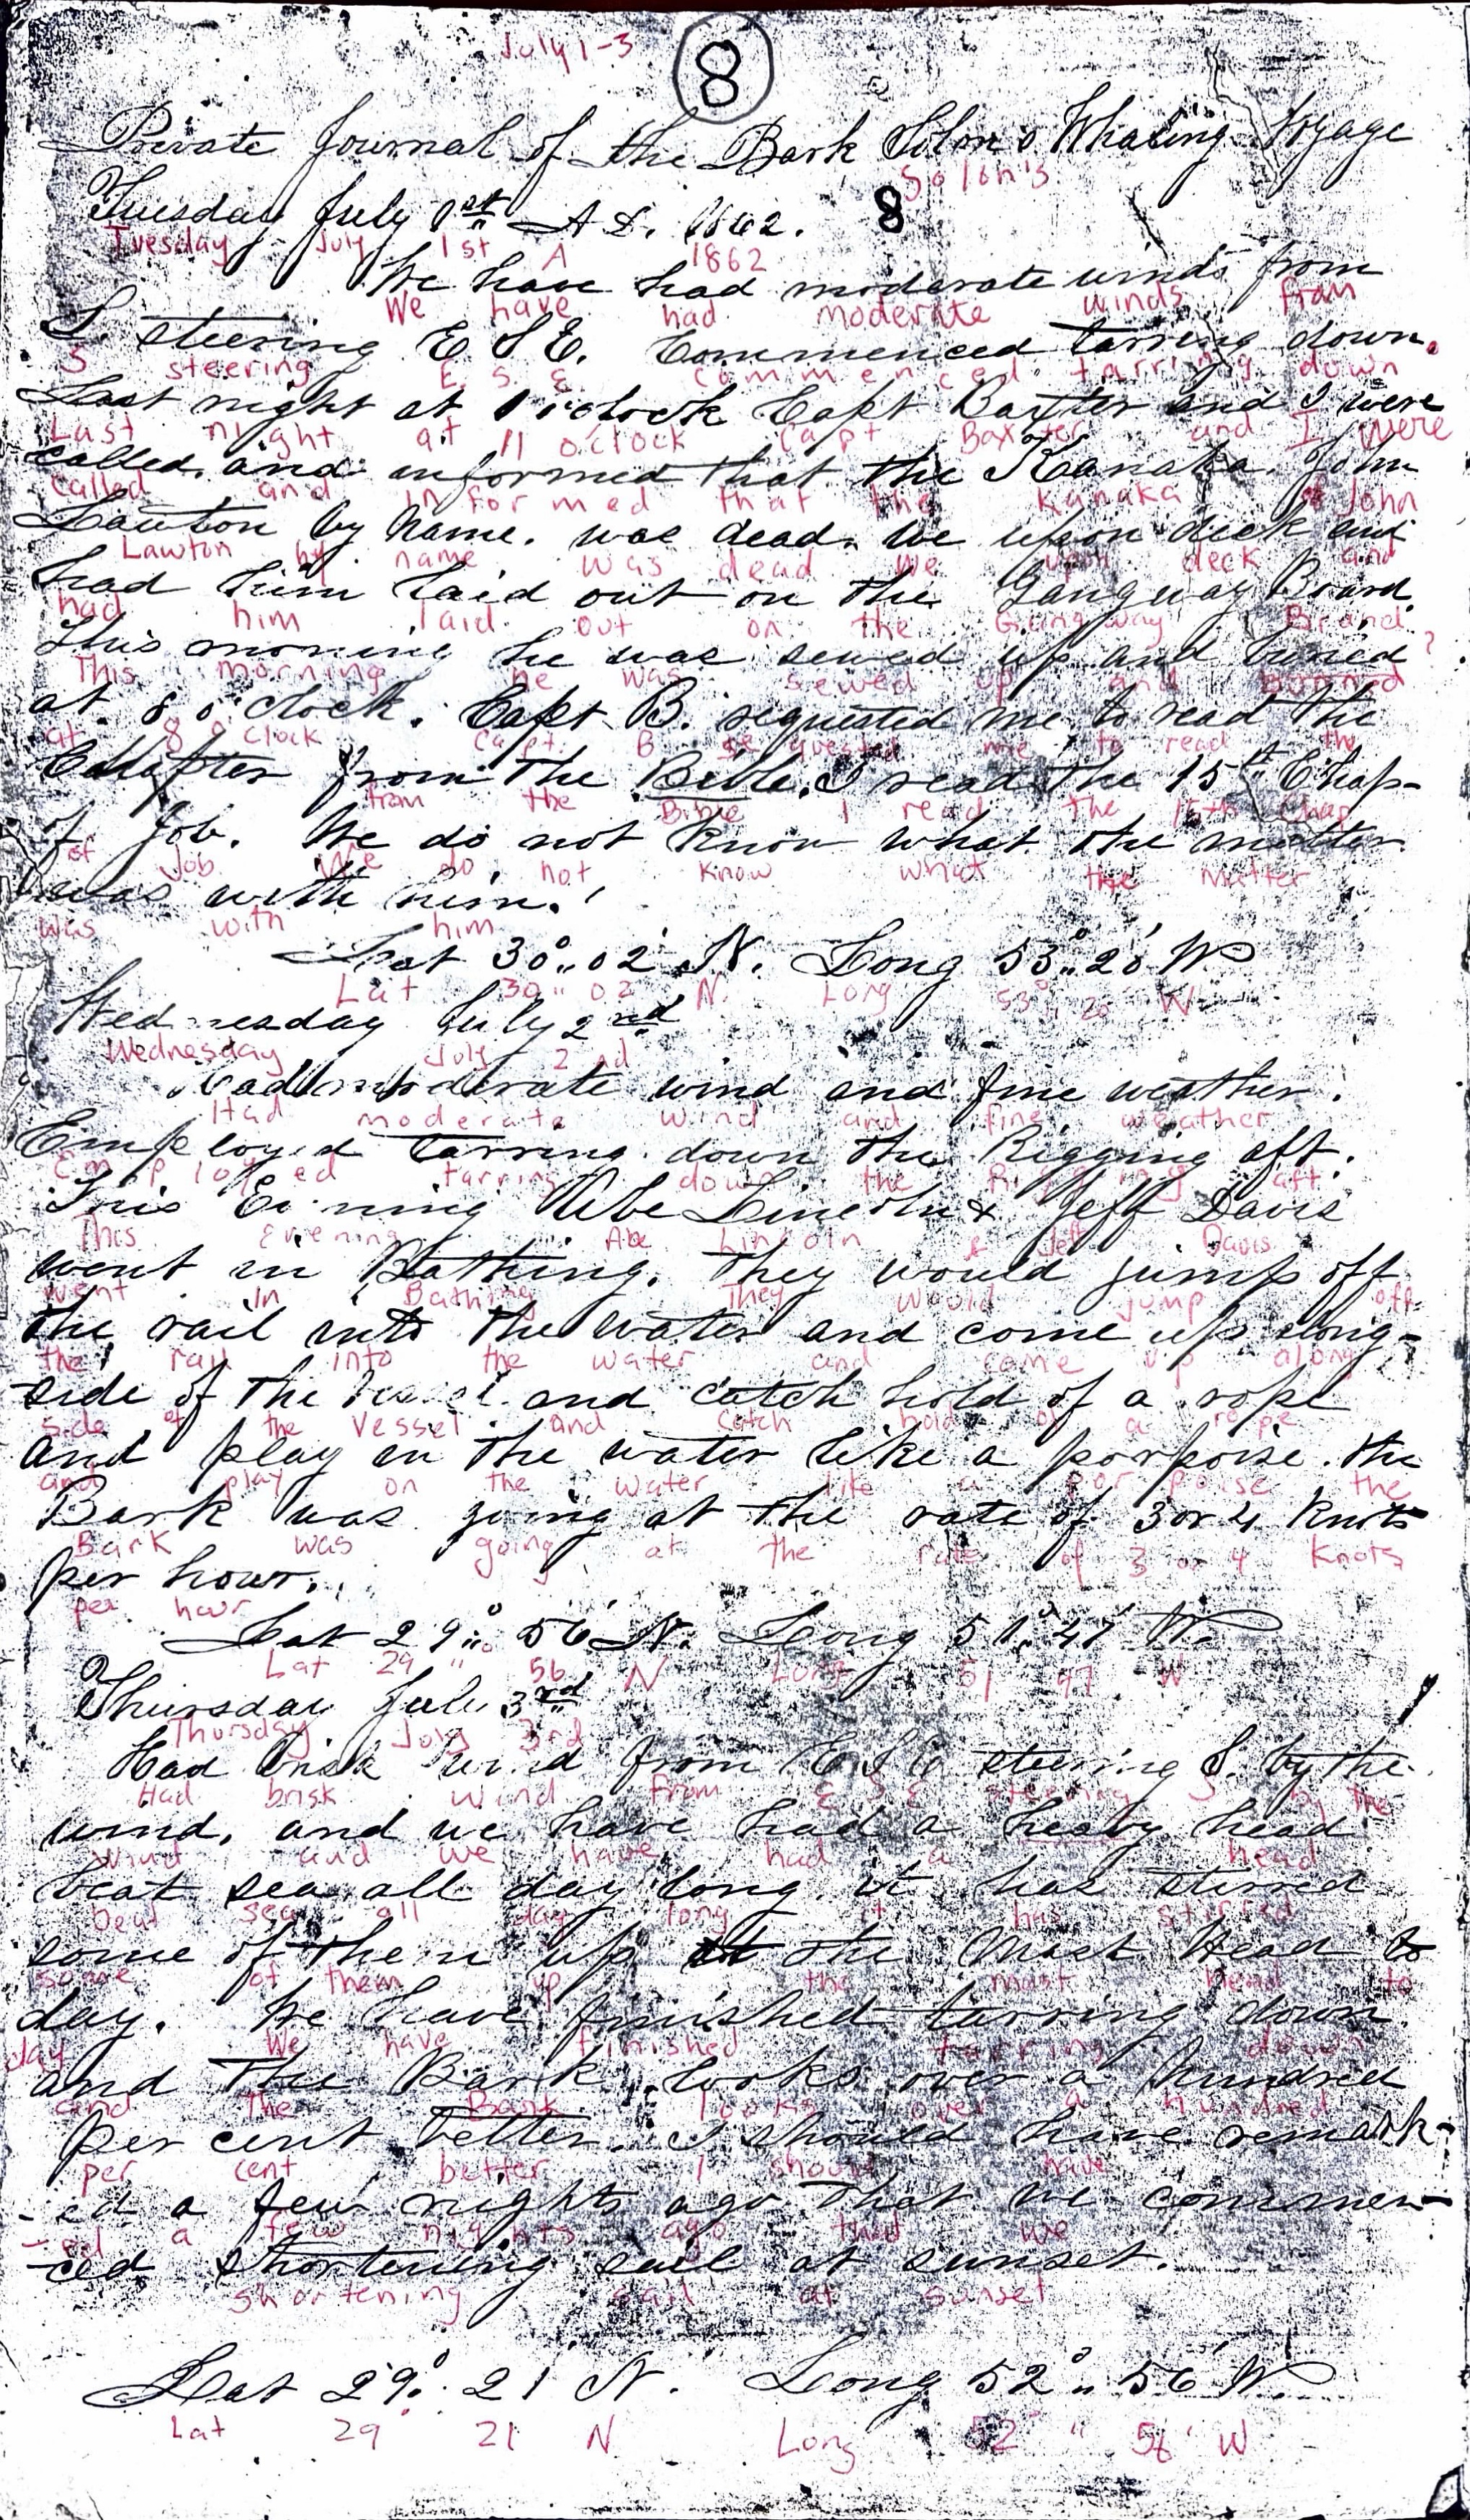 July 1-3
8
Private Journal of the Bark Solon's Whaling Voyage
Solon's
Tuesday July 1st A.D. 1862. 8
Tuesday July 1st A 1862
We have had moderate winds from
We have had moderate winds from
S. steering E S E. Commenced tarring down.
S steering E. S. E. Commenced tarring down
Last night at 11 o'clock Capt Baxter and I were
Last night at 11 o'clock Capt Baxter and I were
called. and informed that the Kanaka. John
called and informed that the Kanaka John
Lawton by name. was dead. we upon deck and
Lawton by name was dead we upon deck and
had him laid out on the Gangway Board.
had him laid out on the Gangway Brand
This morning he was sewed up and buried
This morning he was sewed up and ?
at. 8 o'clock. Capt. B. requested me to read the
at 8 o clock Capt. B requested me to read the
Chapter from the Bible. I read the 15th Chap-
from the Bible I read the 15th Chap
of Job. We do not know what the matter
of Job We do not know what the matter
was with him.
was with him
Lat 30°.. 02' N. Long 53°.. 20' W
Lat 30 " 02 N. Long 53° " 20 W
Wednesday July 2nd
Wednesday July 2nd
Had moderate wind and fine weather.
Had moderate wind and fine weather
Employed tarring down the Rigging aft.
Employed tarring down the Rigging aft
This Evening Abe Lincoln & Jeff Davis
This Evening Abe Lincoln & Jeff Davis
went in Bathing. They would jump off
went in Bathing They would jump off
the rail into the water and come up along-
the rail into the water and come up along
side of the Vessel and catch hold of a rope
side of the Vessel and catch hold of a rope
and play in the water like a porpoise. the
and play on the water like a porpoise the
Bark was going at the rate of 3 or 4 knots
Bark was going at the rate of 3 or 4 Knots
per hour.
per hour
Lat 29°.. 56' N. Long 51°.. 47' W.
Lat 29 " 56 N Long 51 47 W
Thursday July 3rd
Thursday July 3rd
Had brisk wind from E S E steering S. by the
Had brisk wind from E S E steering S by the
wind, and we have had a heavy head
wind and we have had a head
beat sea all day long. it has stirred
beat sea all day long it has stirred
some of them up at the Mast Head to
some of them up the mast head to
day. We have finished tarring down
day We have finished tarring down
and The Bark looks over a hundred
and The Bark looks over a hundred
per cent better. I should have remark-
per cent better I should have
-ed a few nights ago that we commen-
-ed a few nights ago that we
-ced shortening sail at sunset.
shortening sail at sunset
Lat 29°. 21' N. Long 52°.. 56' W.
Lat 29° 21 N Long 52° " 56' W